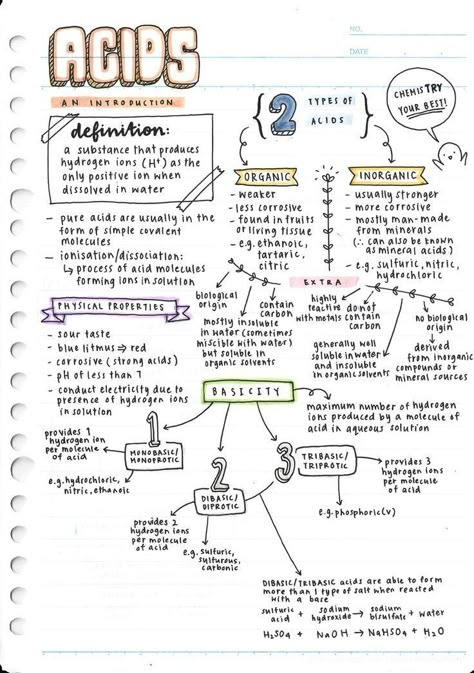 NO.
DATE
ACIDS
AN INTRODUCTION
definition:
a substance that produces
hydrogen ions (H⁺) as the
only positive ion when
dissolved in water
- pure acids are usually in the
form of simple covalent
molecules
- ionisation/dissociation:
↳ process of acid molecules
forming ions in solution
2 TYPES OF
ACIDS
CHEMISTRY
YOUR BEST!
ORGANIC
- weaker
- less corrosive
- found in fruits
or living tissue
- e.g. ethanoic,
tartaric,
citric
INORGANIC
- usually stronger
- more corrosive
- mostly man-made
from minerals
(∴ can also be known
as mineral acids)
- e.g. sulfuric, nitric,
hydrochloric
EXTRA
biological
origin
mostly insoluble
in water (sometimes
miscible with water)
but soluble in
organic solvents
contain
carbon
highly
reactive
with metals
do not
contain
carbon
generally well
soluble in water
and insoluble
in organic solvents
no biological
origin
derived
from inorganic
compounds or
mineral sources
PHYSICAL PROPERTIES
- sour taste
- blue litmus ⇒ red
- corrosive (strong acids)
- pH of less than 7
- conduct electricity due to
presence of hydrogen ions
in solution
BASICITY
maximum number of hydrogen
ions produced by a molecule of
acid in aqueous solution
1
MONOBASIC/
MONOPROTIC
provides 1
hydrogen ion
per molecule
of acid
e.g. hydrochloric,
nitric, ethanoic
2
DIBASIC/
DIPROTIC
provides 2
hydrogen ions
per molecule
of acid
e.g. sulfuric,
sulfurous,
carbonic
3
TRIBASIC/
TRIPROTIC
provides 3
hydrogen ions
per molecule
of acid
e.g. phosphoric(v)
DIBASIC/TRIBASIC acids are able to form
more than 1 type of salt when reacted
with a base
sulfuric acid + sodium hydroxide → sodium bisulfate + water
H₂SO₄ + NaOH → NaHSO₄ + H₂O